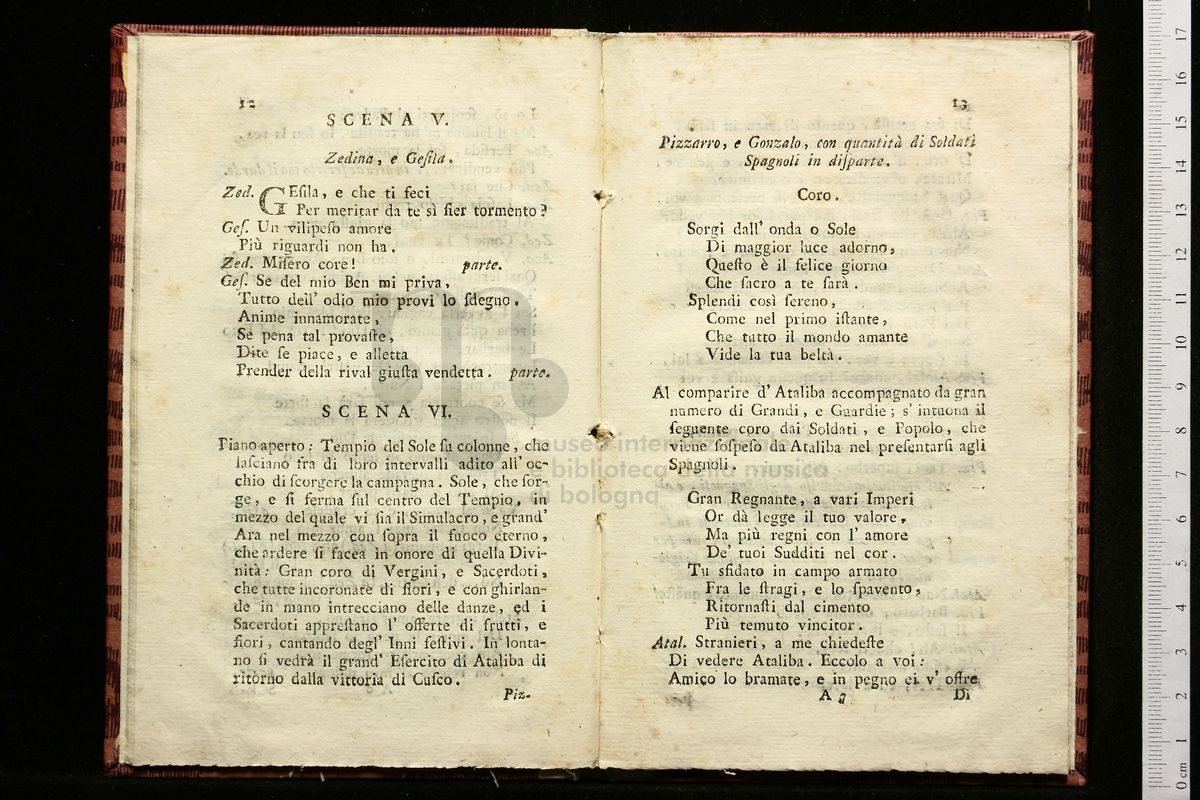 12
SCENA V.
Zedina, e Geſila.
Zed. GEſila, e che ti feci
Per meritar da te sì fier tormento?
Geſ. Un vilipeſo amore
Più riguardi non ha.
Zed. Miſero core! parte.
Geſ. Se del mio Ben mi priva,
Tutto dell' odio mio provi lo ſdegno.
Anime innamorate,
Se pena tal provaſte,
Dite ſe piace, e alletta
Prender della rival giuſta vendetta. parte.
SCENA VI.
Piano aperto: Tempio del Sole ſu colonne, che
laſciano fra di loro intervalli adito all' oc-
chio di ſcorgere la campagna. Sole, che ſor-
ge, e ſi ferma ſul centro del Tempio, in
mezzo del quale vi ſia il Simulacro, e grand'
Ara nel mezzo con ſopra il fuoco eterno,
che ardere ſi facea in onore di quella Divi-
nità: Gran coro di Vergini, e Sacerdoti,
che tutte incoronate di fiori, e con ghirlan-
de in mano intrecciano delle danze, ed i
Sacerdoti appreſtano l' offerte di frutti, e
fiori, cantando degl' Inni feſtivi. In lonta-
no ſi vedrà il grand' Eſercito di Ataliba di
ritorno dalla vittoria di Cuſco.
Piz-
13
Pizzarro, e Gonzalo, con quantità di Soldati
Spagnoli in diſparte.
Coro.
Sorgi dall' onda o Sole
Di maggior luce adorno,
Queſto è il felice giorno
Che ſacro a te ſarà.
Splendi così ſereno,
Come nel primo iſtante,
Che tutto il mondo amante
Vide la tua beltà.
Al comparire d' Ataliba accompagnato da gran
numero di Grandi, e Guardie; s' intuona il
ſeguente coro dai Soldati, e Popolo, che
viene ſoſpeſo da Ataliba nel preſentarſi agli
Spagnoli.
Gran Regnante, a vari Imperi
Or dà legge il tuo valore,
Ma più regni con l' amore
De' tuoi Sudditi nel cor.
Tu sfidato in campo armato
Fra le ſtragi, e lo ſpavento,
Ritornaſti dal cimento
Più temuto vincitor.
Atal. Stranieri, a me chiedeſte
Di vedere Ataliba. Eccolo a voi:
Amico lo bramate, e in pegno ei v' offre
A 7 Di
museo internazionale
e biblioteca della musica
di bologna
0 cm 1 2 3 4 5 6 7 8 9 10 11 12 13 14 15 16 17